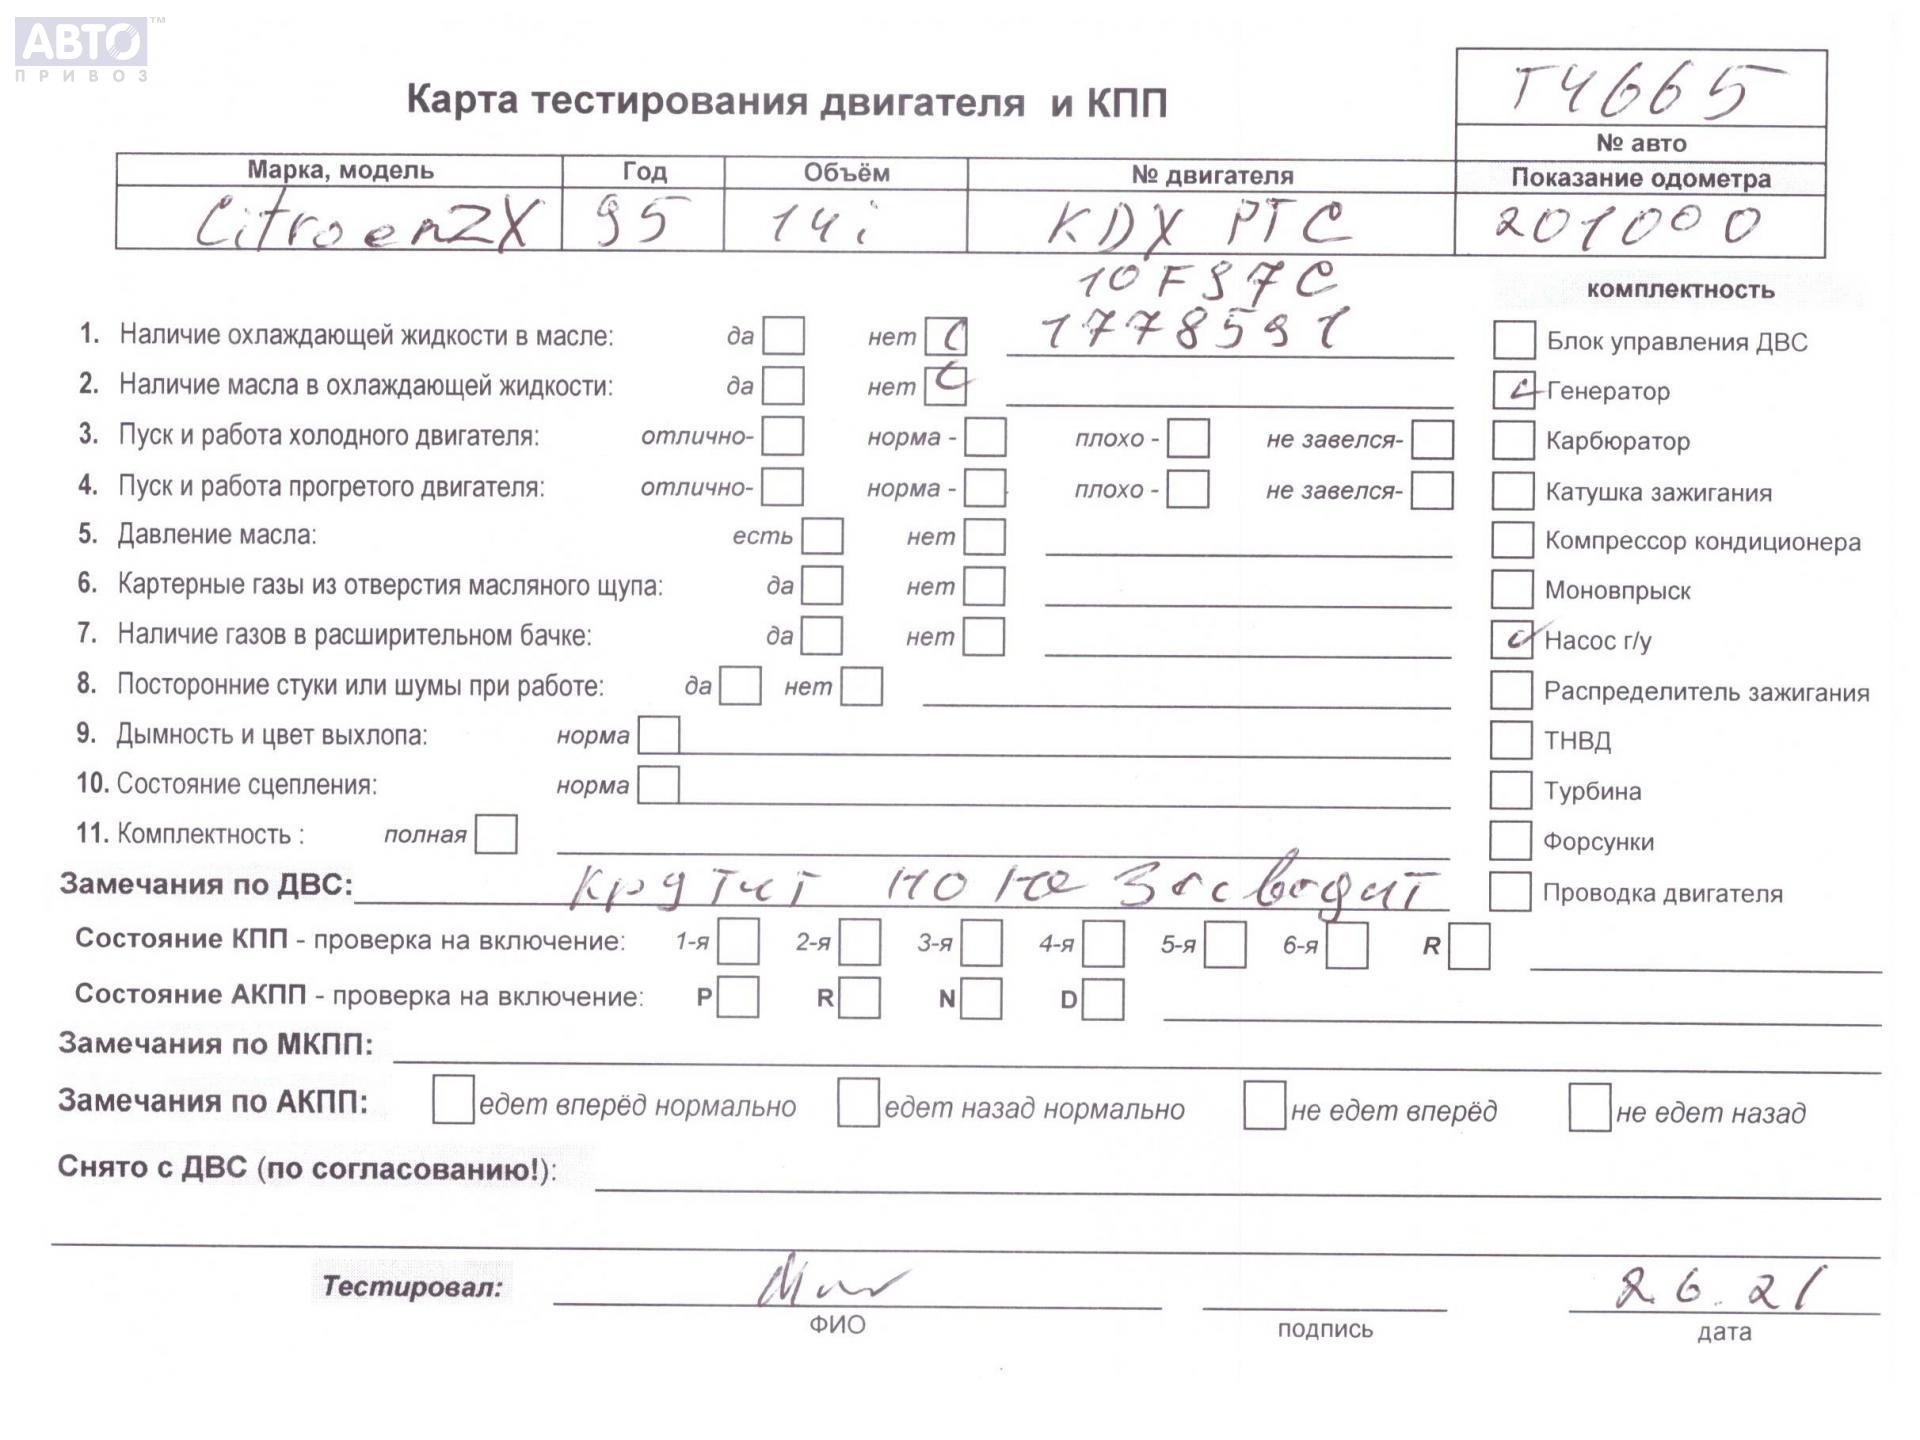 АВТО™
ПРИВОЗ
Т4665
Карта тестирования двигателя и КПП
№ авто
Марка, модель Год Объём № двигателя Показание одометра
Citroen ZX 95 14i KDX PTC 201000
10F97C
комплектность
1778591
1. Наличие охлаждающей жидкости в масле: да нет
Блок управления ДВС
2. Наличие масла в охлаждающей жидкости: да нет
Генератор
3. Пуск и работа холодного двигателя: отлично- норма - плохо - не завелся-
Карбюратор
4. Пуск и работа прогретого двигателя: отлично- норма - плохо - не завелся-
Катушка зажигания
5. Давление масла: есть нет
Компрессор кондиционера
6. Картерные газы из отверстия масляного щупа: да нет
Моновпрыск
7. Наличие газов в расширительном бачке: да нет
Насос г/у
8. Посторонние стуки или шумы при работе: да нет
Распределитель зажигания
9. Дымность и цвет выхлопа: норма
ТНВД
10. Состояние сцепления: норма
Турбина
11. Комплектность : полная
Форсунки
Замечания по ДВС: крутит но не заводит
Проводка двигателя
Состояние КПП - проверка на включение: 1-я 2-я 3-я 4-я 5-я 6-я R
Состояние АКПП - проверка на включение: P R N D
Замечания по МКПП:
Замечания по АКПП: едет вперёд нормально едет назад нормально не едет вперёд не едет назад
Снято с ДВС (по согласованию!):
Тестировал: 2.6.21
ФИО подпись дата